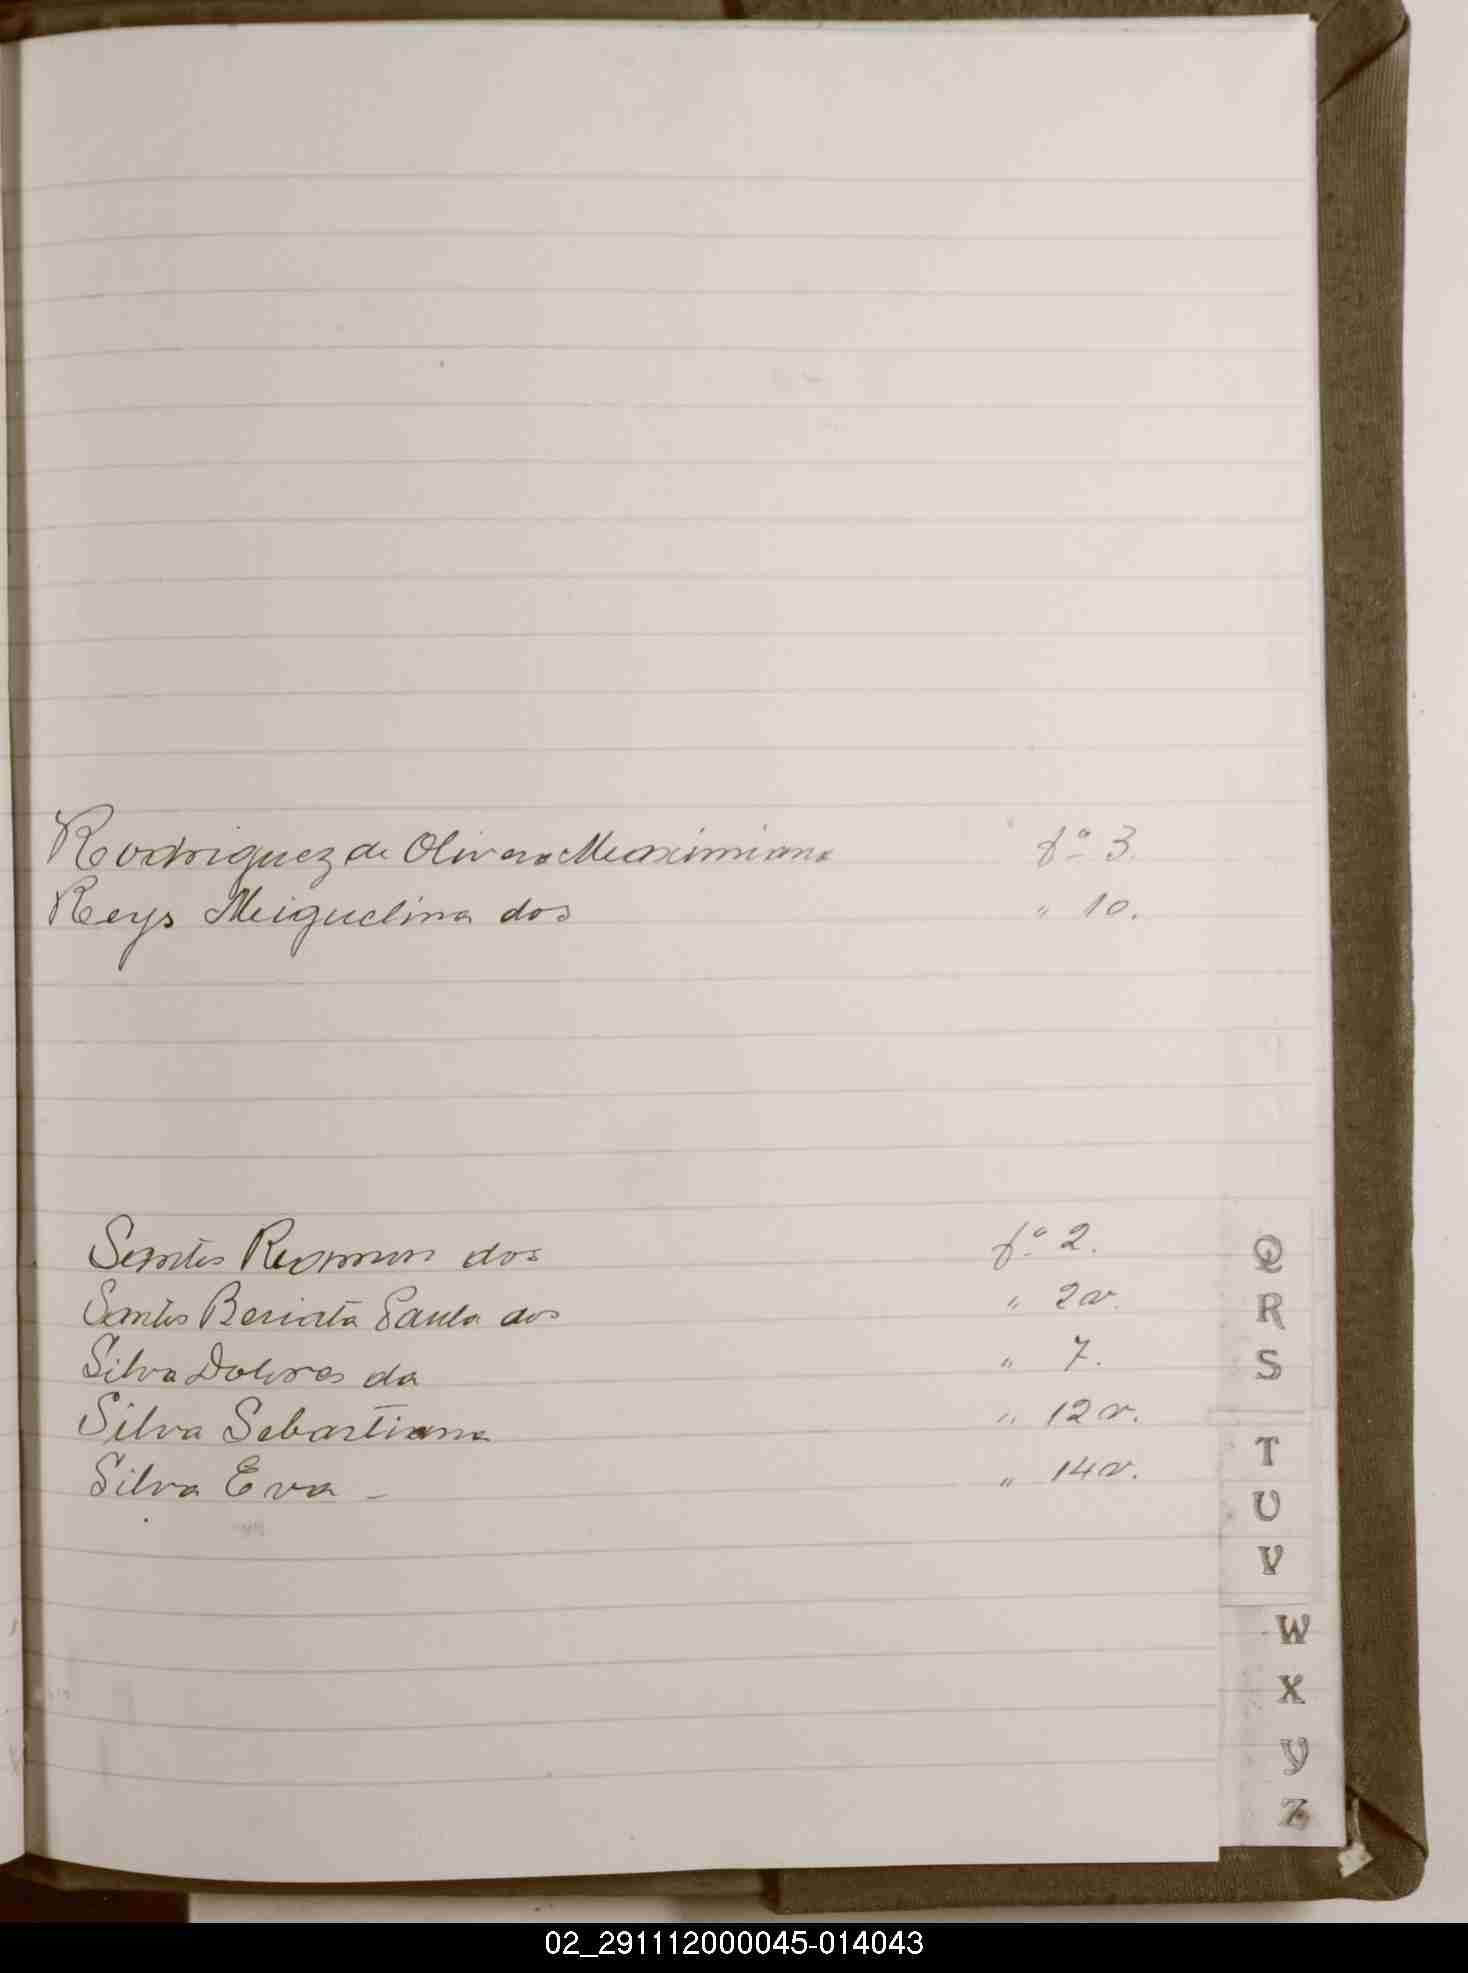 Rodriguez de Olivera Maximiana fº 3.
Reys Miguelina dos " 10.
Santos Ramon dos fº 2.
Santos Beriata Paula dos " 2v.
Silva Dolores da " 7.
Silva Sebastiana " 12v.
Silva Eva - " 14v.
Q
R
S
T
U
V
W
X
Y
Z
02_291112000045-014043